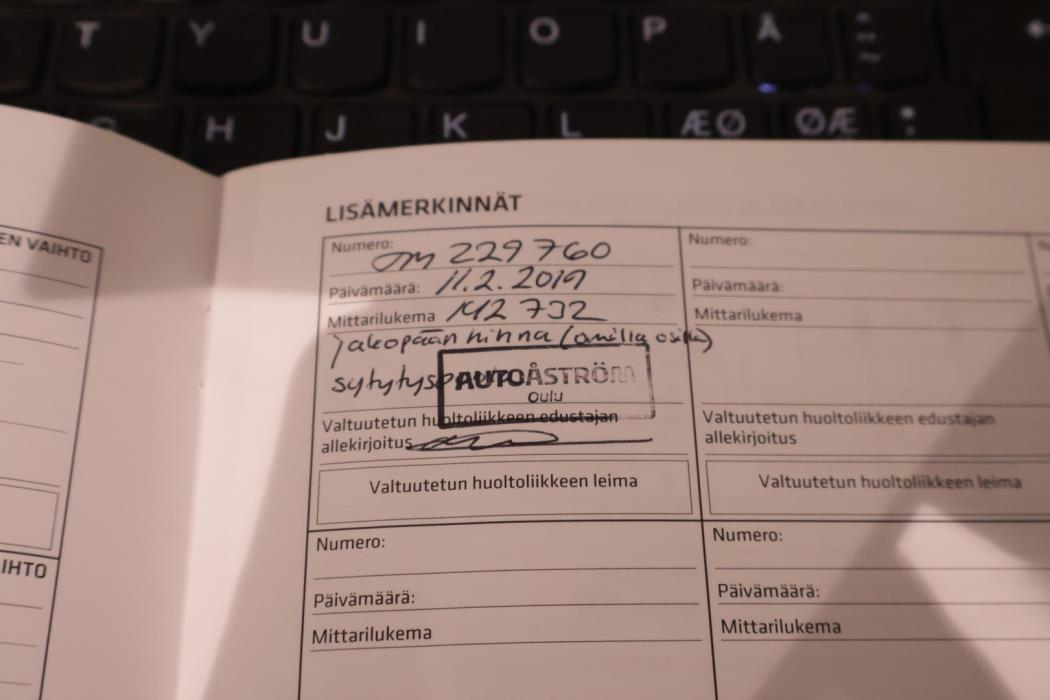 T Y U I O P Å
H J K L ÆØ ØÆ :
EN VAIHTO
IHTO
LISÄMERKINNÄT
Numero: OM 229 760
Päivämäärä: 11.2.2019
Mittarilukema 142 732
jakopään hihna (omilla osilla)
AUTOÅSTRÖM
Oulu
Valtuutetun huoltoliikkeen edustajan
allekirjoitus
Valtuutetun huoltoliikkeen leima
Numero:
Päivämäärä:
Mittarilukema
Valtuutetun huoltoliikkeen edustajan
allekirjoitus
Valtuutetun huoltoliikkeen leima
Numero:
Päivämäärä:
Mittarilukema
Numero:
Päivämäärä:
Mittarilukema